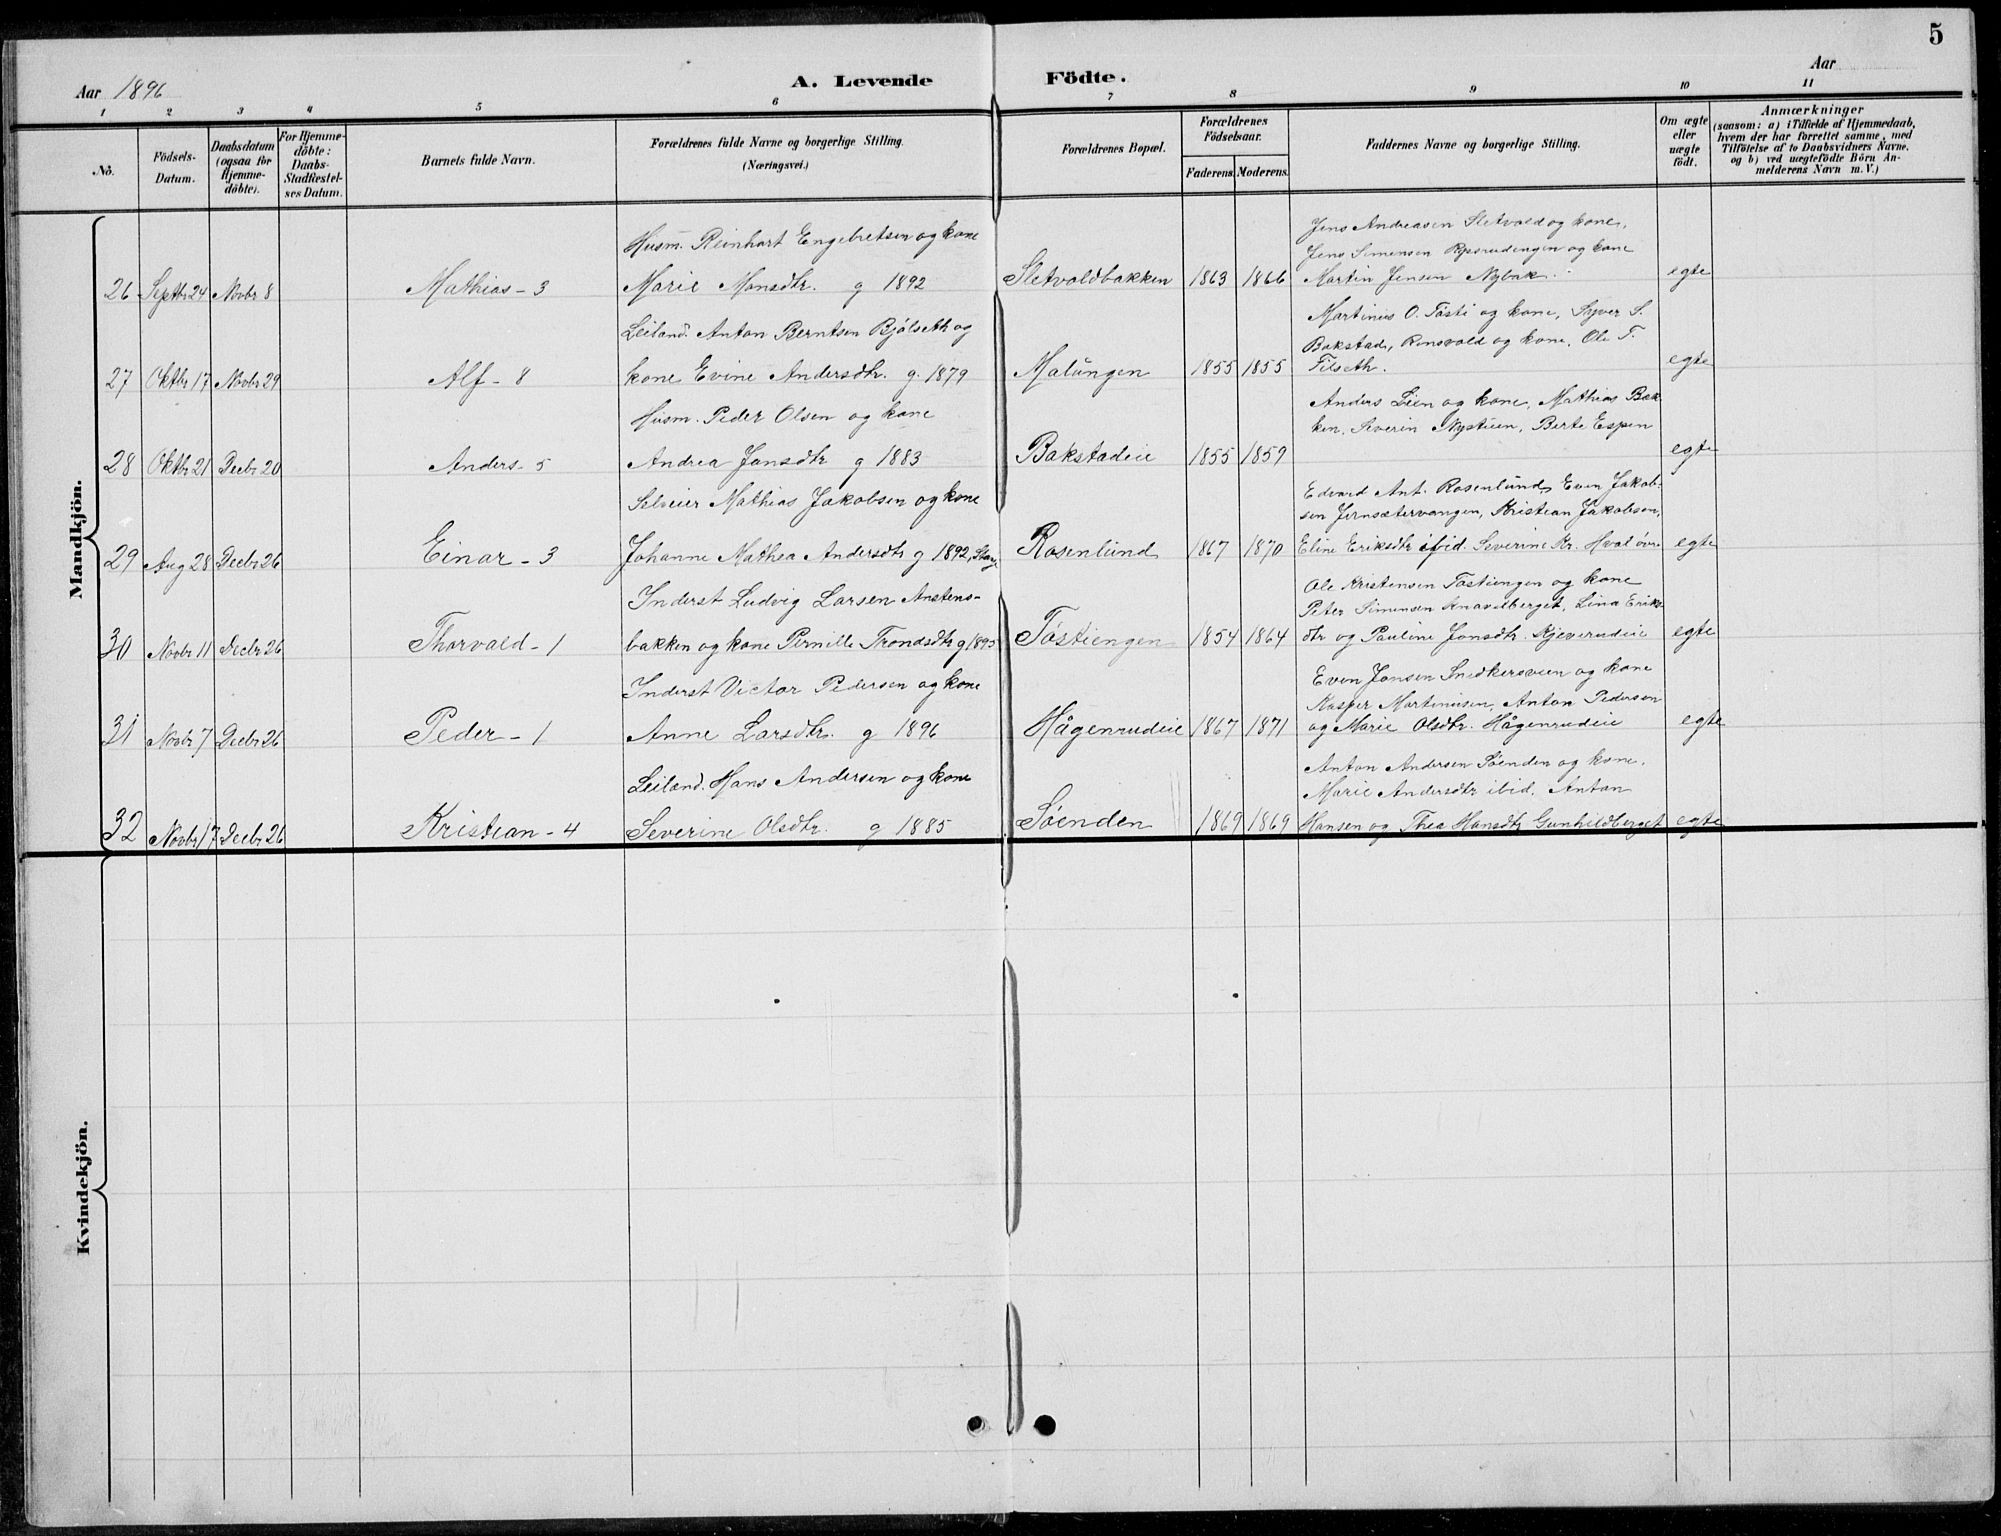 5
Aar 1896
A. Levende Födte.
Aar
1 2 3 4 5 6 7 8 9 10 11
No.
Födsels-Datum.
Daabsdatum (ogsaa for Hjemmedöbte).
For Hjemmedöbte: Daabs-Stadfestelses Datum.
Barnets fulde Navn.
Forældrenes fulde Navne og borgerlige Stilling.
(Næringsvei.)
Forældrenes Bopæl.
Forældrenes Födselsaar.
Faderens. Moderens.
Faddernes Navne og borgerlige Stilling.
Om ægte eller uægte födt.
Anmærkninger
(saasom: a) i Tilfælde af Hjemmedaab,
hvem der har forrettet samme, med
Tilföielse af to Daabsvidners Navne.
og b) ved uægtefödte Börn An-
melderens Navn m. V.)
Mandkjön.
Husm. Reinhart Engebretsen og kone
Jens Andreasen Sletvold og kone,
Jens Simensen Rysrudengen og kone
26 Septbr 24 Novbr 8 Mathias - 3 Marie Monsdtr. g 1892 Sletvoldbakken 1863 1866 Martin Jensen Nybak. egte
Leiland. Anton Berntsen Bjölseth og
Martinus O. Tosti og kone, Syver S.
Bakstad, Rensvold og kone, Ole T.
27 Oktbr 17 Novbr 29 Alf - 8 kone Evine Andersdtr. g. 1879 Malungen 1855 1855 Filseth. egte
Husm. Peder Olsen og kone
Anders Lien og kone, Mathias Bak-
ken, Severin Nystuen, Berte Espen
28 Oktbr 21 Decbr 20 Anders - 5 Andrea Jonsdtr g 1883 Bakstadeie 1855 1859 egte
Selveier Mathias Jakobsen og kone
Edvard Ant. Rosenlund, Even Jakob-
sen Jernsætervangen, Kristian Jakobsen,
29 Aug 28 Decbr 26 Einar - 3 Johanne Mathea Andersdtr g 1892, Stange Rosenlund 1867 1870 Eline Eriksdtr ibid. Severine Kr. Hval övre egte
Inderst Ludvig Larsen Anstens-
Ole Kristensen Tostiengen og kone
Peter Simensen Knavelberget, Lina Eriks-
30 Novbr 11 Decbr 26 Thorvald - 1 bakken og kone Pernille Trondsdtr g 1895 Tostiengen 1854 1864 dtr og Pauline Jonsdtr. Kjeverudeie egte
Inderst Victor Pedersen og kone
Even Jonsen Snedkersveen og kone
Kasper Martinusen, Anton Pedersen
31 Novbr 7 Decbr 26 Peder - 1 Anne Larsdtr. g 1896 Hågenrudeie 1867 1871 og Marie Olsdtr. Hågenrudeie egte
Leiland. Hans Andersen og kone
Anton Andersen Söenden og kone.
Marie Andersdtr ibid, Anton
32 Novbr 17 Decbr 26 Kristian - 4 Severine Olsdtr. g 1885 Söenden 1869 1869 Hansen og Thea Hansdtr Gunhildberget egte
Kvindekjön.